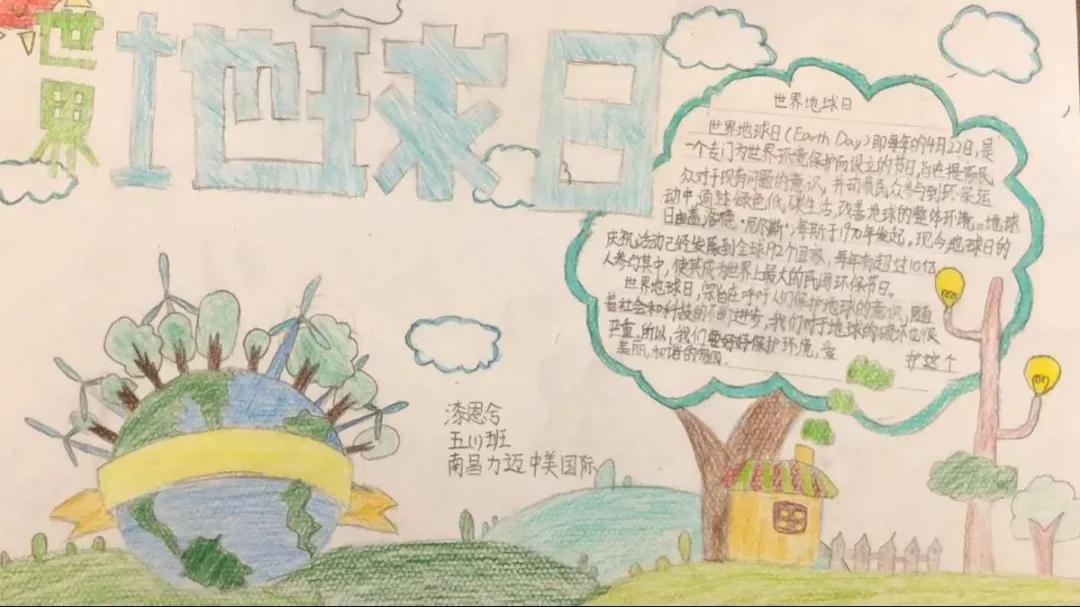 世界
地球日
世界地球日
世界地球日(Earth Day)即每年的4月22日,是
一个专门为世界环境保护而设立的节日,旨在提高民
众对于现有问题的意识,并动员民众参与到环保运
动中,通过绿色低碳生活,改善地球的整体环境。地球
日由盖洛德·尼尔斯,海斯于1970年发起。现今地球日的
庆祝活动已经发展到全球192个国家,每年有超过10亿
人参与其中,使其成为世界上最大的民间环保节日。
世界地球日,宗旨在呼吁人们保护地球的意识,随
着社会和科技的不断进步,我们对于地球的破坏也很
严重,所以,我们要好好保护环境,爱护这个
美丽,和谐的
漆恩兮
五(1)班
南昌力迈中美国际